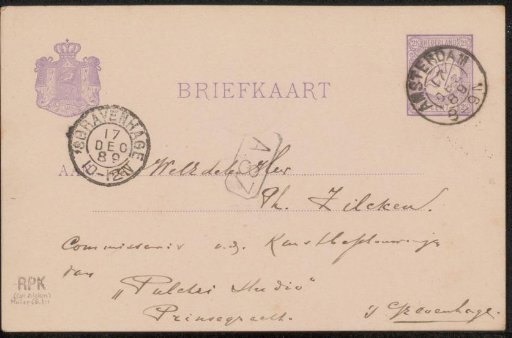 NEDERLAND
BRIEFKAART
AMSTERDAM
17
89
'S GRAVENHAGE
17
DEC
89
10-12V
A 37
AAN WelEd. den Heer
Ph. Zilcken.
Commissaris v.d. Kunstbeschouwingen
van „Pulchri Studio"
Prinsegracht.
's Gravenhage.
RPK